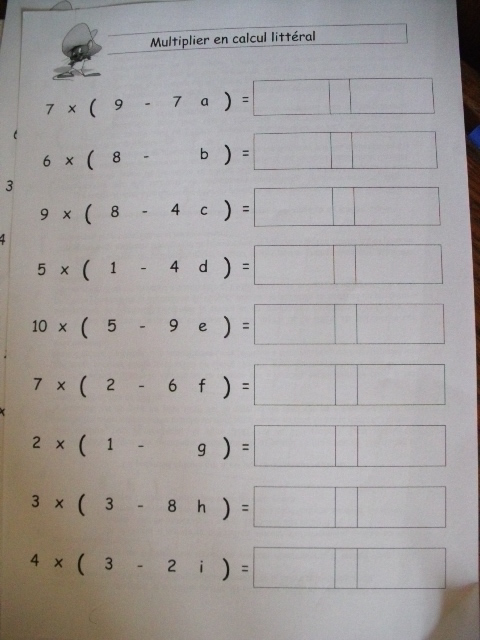 Multiplier en calcul littéral
7 x ( 9 - 7 a ) =
6 x ( 8 - b ) =
9 x ( 8 - 4 c ) =
5 x ( 1 - 4 d ) =
10 x ( 5 - 9 e ) =
7 x ( 2 - 6 f ) =
2 x ( 1 - g ) =
3 x ( 3 - 8 h ) =
4 x ( 3 - 2 i ) =